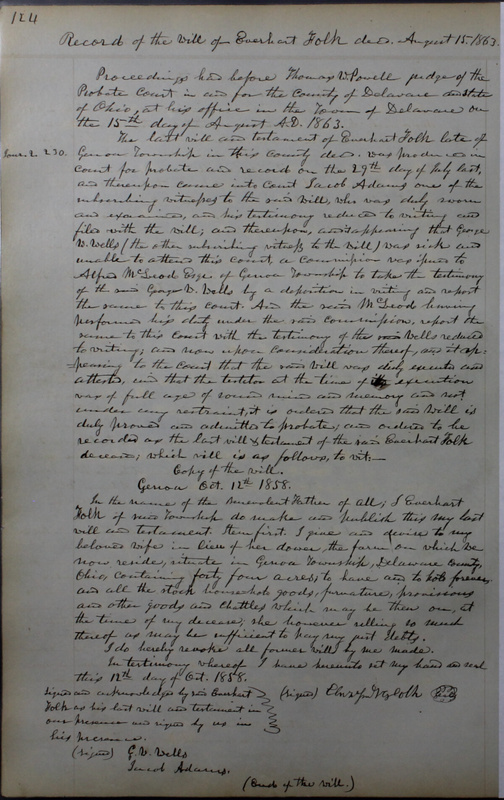 124
Record of the Will of Everhart Folk decd. August 15. 1863.
Proceedings had before Thomas W. Powell judge of the
Probate Court in and for the County of Delaware and State
of Ohio, at his office in the Town of Delaware on
the 15th day of August A.D. 1863.
The last will and testament of Everhart Folk late of
Jour. 2. 230. Genoa Township in this County decd. was produced in
Court for probate and record on the 29th day of July last,
and thereupon came into Court Jacob Adams one of the
subscribing witnesses to the said Will, who was duly sworn
and examined, and his testimony reduced to writing and
filed with the will; and thereupon, and appearing that George
W. Wells (the other subscribing witness to the Will) was sick and
unable to attend this Court, a Commission was issued to
Alfred McLeod Esqr. of Genoa Township to take the testimony
of the said George W. Wells by a deposition in writing and report
the same to this Court. And the said McLeod having
performed his duty under the said Commission, report the
same to this Court with the testimony of the said Wells reduced
to writing; and now upon consideration thereof, and it ap-
-pearing to the Court that the said Will was duly executed and
attested, and that the testator at the time of its execution
was of full age of sound mind and memory and not
under any restraint, it is ordered that the said Will is
duly proved and admitted to probate, and ordered to be
recorded as the last will & testament of the said Everhart Folk
deceased; which will is as follows, to wit:—
Copy of the will.
Genoa Oct. 12th 1858.
In the name of the Benevolent Father of all; I Everhart
Folk of said Township do make and publish this my last
will and testament. Item first. I give and devise to my
beloved wife in lieu of her dower, the farm on which we
now reside, situate in Genoa Township, Delaware County,
Ohio, containing forty four acres, to have and to hold forever,
and all the stock household goods, furniture, provisions
and other goods and chattles which may be then on, at
the time of my decease; she however selling so much
thereof as may be sufficient to pay my just debts.
I do hereby revoke all former wills by me made.
In testimony whereof I have hereunto set my hand and seal
this 12th day of Oct. 1858.
Signed and acknowledged by said Everhart (signed)
Folk as his last will and testament in
our presence and signed by us in
his presence.
(signed) G. W. Wells
Jacob Adams.
(End of the will.)